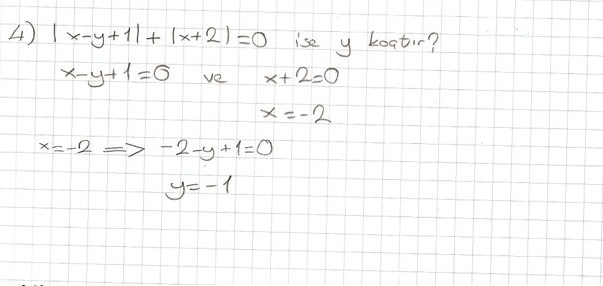 4) |x-y+1| + |x+2| = 0 ise y kaçtır?
x-y+1=0 ve x+2=0
x=-2
x=-2 => -2-y+1=0
y=-1